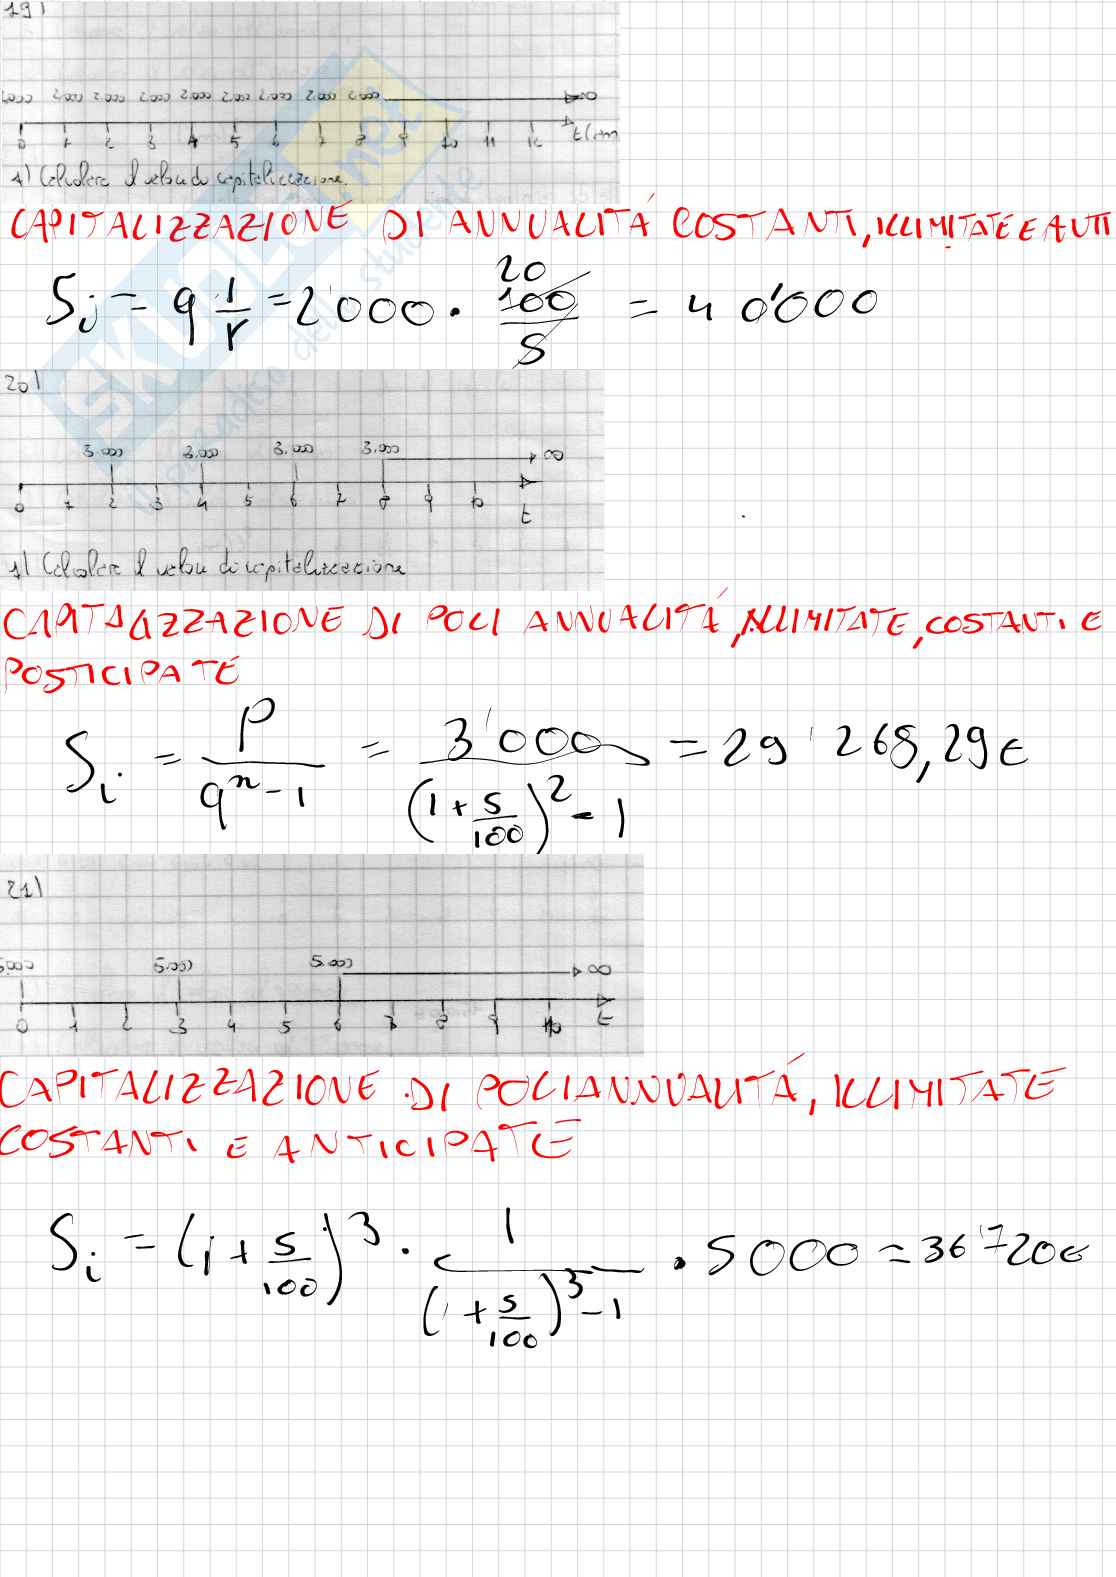 19)
2.000 2.000 2.000 2.000 2.000 2.000 2.000 2.000 2.000 ∞
0 1 2 3 4 5 6 7 8 9 10 11 12 t(anni
1) Calcolare il valore di capitalizzazione.
CAPITALIZZAZIONE DI ANNUALITÁ COSTANTI, ILLIMITATE E ANTI
Si = q 1/r = 2'000 · 100/5 20 = 40'000
20)
3.000 3.000 3.000 3.000 ∞
0 1 2 3 4 5 6 7 8 9 10 t
1) Calcolare il valore di capitalizzazione
CAPITALIZZAZIONE DI POLI ANNUALITÁ, ILLIMITATE, COSTANTI E
POSTICIPATE
Si = P/(q^n - 1) = 3'000/((1 + 5/100)^2 - 1) = 29'268,29€
21)
5.000 5.000 5.000 ∞
0 1 2 3 4 5 6 7 8 9 10 t
CAPITALIZZAZIONE DI POLIANNUALITÁ, ILLIMITATE
COSTANTI E ANTICIPATE
Si = (1 + 5/100)^3 · 1/((1 + 5/100)^3 - 1) · 5000 = 36'720€
SKUOLA.net
il paradiso dello studente